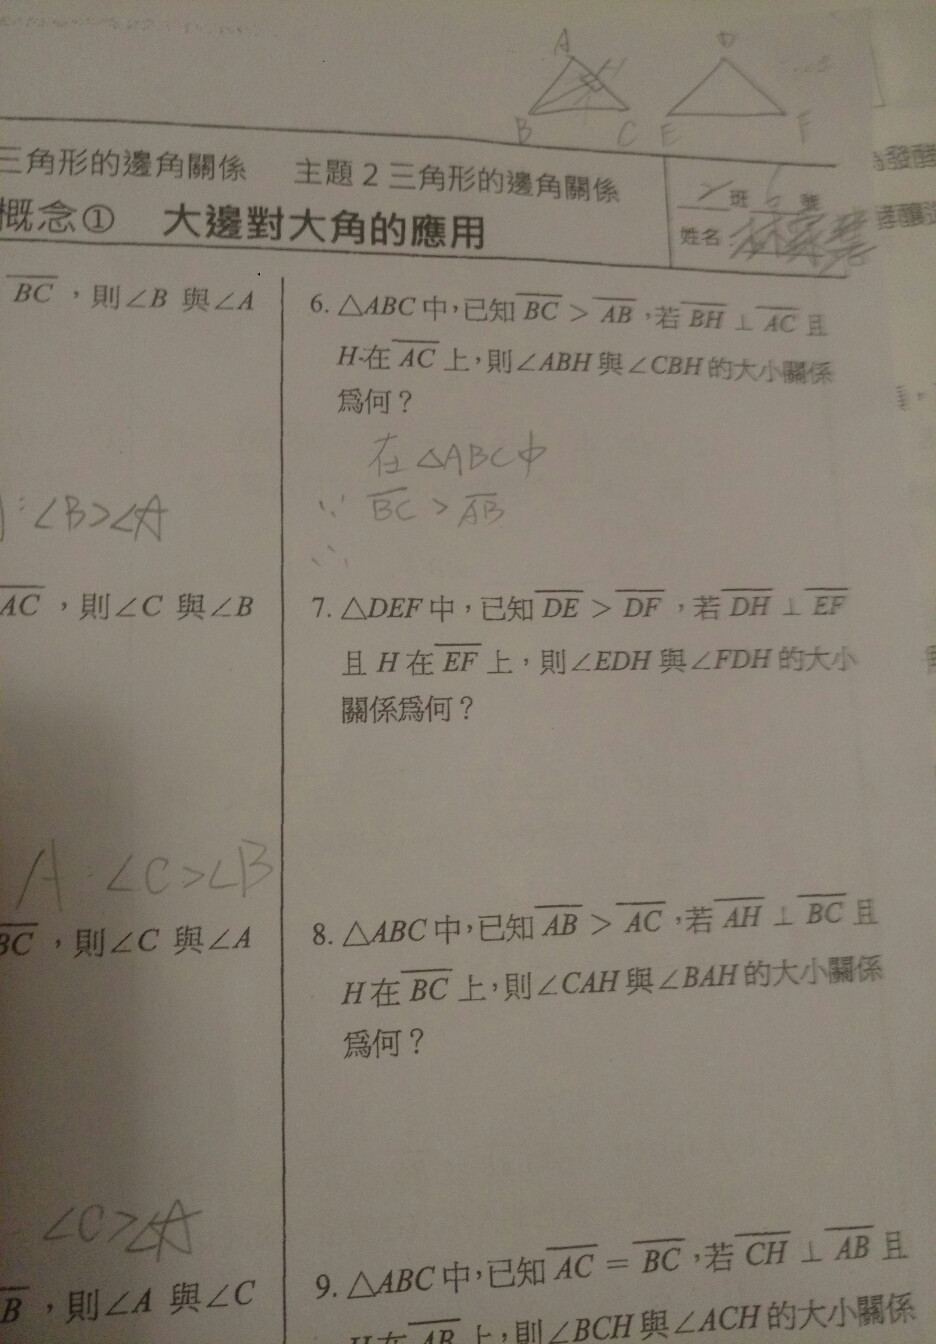 A
D
B
C
E
F
三角形的邊角關係 主題2 三角形的邊角關係
概念① 大邊對大角的應用
班 號
姓名:
BC,則∠B 與∠A
∠B>∠A
AC,則∠C 與∠B
A:∠C>∠B
BC,則∠C 與∠A
∠C>∠A
B,則∠A 與∠C
6. △ABC中,已知 BC > AB,若 BH ⊥ AC 且
H在 AC 上,則∠ABH 與∠CBH 的大小關係
為何?
在△ABC中
∵ BC > AB
∴
7. △DEF 中,已知 DE > DF,若 DH ⊥ EF
且 H 在 EF 上,則∠EDH 與∠FDH 的大小
關係為何?
8. △ABC中,已知 AB > AC,若 AH ⊥ BC 且
H 在 BC 上,則∠CAH 與∠BAH 的大小關係
為何?
9. △ABC中,已知 AC = BC,若 CH ⊥ AB 且
H 在 AB 上,則∠BCH 與∠ACH 的大小關係